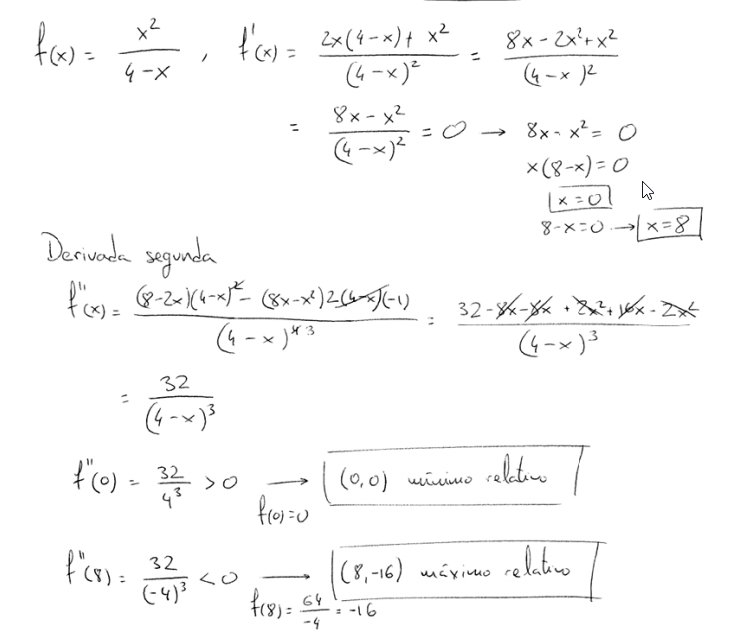 f(x) = x²/(4-x) , f'(x) = (2x(4-x) + x²)/(4-x)² = (8x - 2x² + x²)/(4-x)²
= (8x - x²)/(4-x)² = 0 → 8x - x² = 0
x(8-x) = 0
x = 0
8-x=0 → x=8
Derivada segunda
f''(x) = ((8-2x)(4-x)² - (8x-x²)2(4-x)(-1))/(4-x)⁴ ³ = (32 - 8x - 8x + 2x² + 16x - 2x²)/(4-x)³
= 32/(4-x)³
f''(0) = 32/4³ > 0 → (0,0) mínimo relativo
f(0)=0
f''(8) = 32/(-4)³ < 0 → (8,-16) máximo relativo
f(8) = 64/-4 = -16